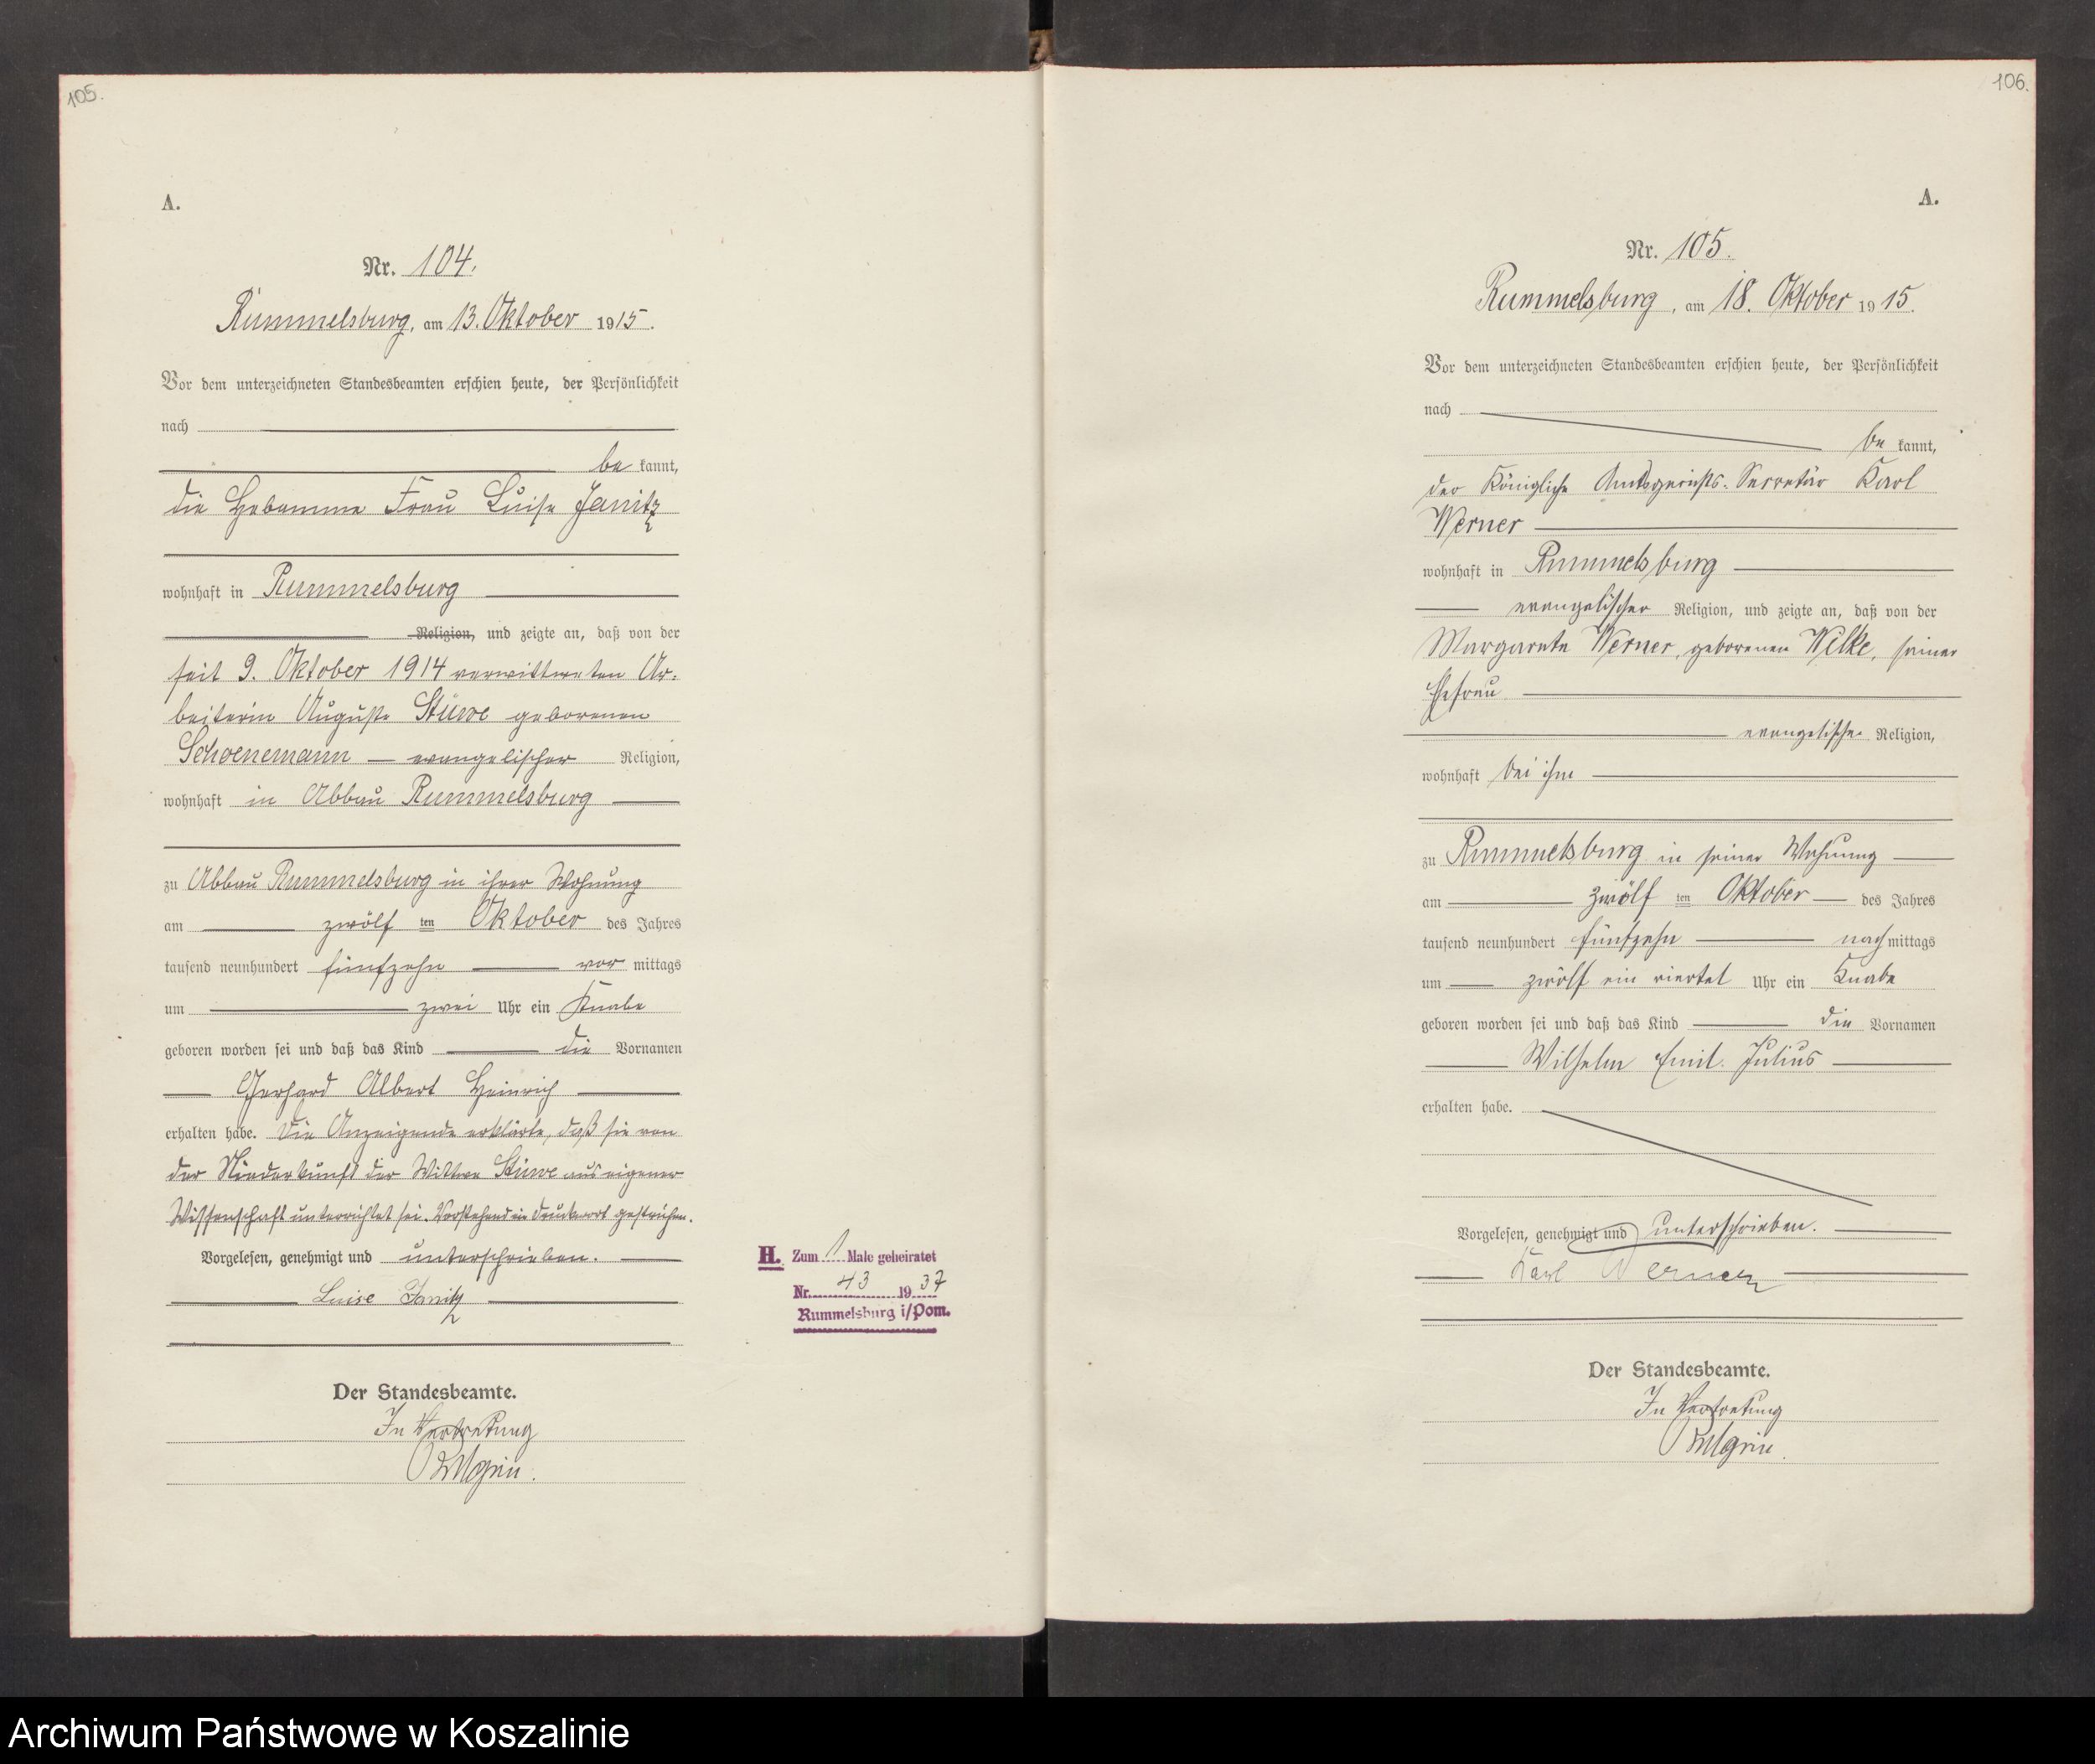 105.
A.
Nr. 104.
Rummelsburg, am 13. Oktober 1915.
Vor dem unterzeichneten Standesbeamten erschien heute, der Persönlichkeit
nach
be kannt,
die Hebamme Frau Luise Janitz
wohnhaft in Rummelsburg
Religion, und zeigte an, daß von der
seit 9. Oktober 1914 verwittweten Ar-
beiterin Auguste Stüwe geborenen
Schoenemann — evangelischer Religion,
wohnhaft in Abbau Rummelsburg
zu Abbau Rummelsburg in ihrer Wohnung
am zwölf ten Oktober des Jahres
tausend neunhundert fünfzehn vor mittags
um zwei Uhr ein Knabe
geboren worden sei und daß das Kind die Vornamen
Gerhard Albert Heinrich
erhalten habe. Die Anzeigende erklärte, daß sie von
der Niederkunft der Wittwe Stüwe aus eigener
Wissenschaft unterrichtet sei. Vorstehend ein Druckwort gestrichen.
Vorgelesen, genehmigt und unterschrieben.
Luise Janitz
Der Standesbeamte.
In Vertretung
H. Zum 1 Male geheiratet
Nr. 43 1937
Rummelsburg i/Pom.
106.
A.
Nr. 105.
Rummelsburg, am 18. Oktober 1915.
Vor dem unterzeichneten Standesbeamten erschien heute, der Persönlichkeit
nach
be kannt,
der Königliche Amtsgerichts-Secretär Karl
Werner
wohnhaft in Rummelsburg
evangelischer Religion, und zeigte an, daß von der
Margarete Werner, geborenen Wilke, seiner
Ehefrau
evangelischer Religion,
wohnhaft bei ihm
zu Rummelsburg in seiner Wohnung
am zwölf ten Oktober des Jahres
tausend neunhundert fünfzehn nach mittags
um zwölf ein viertel Uhr ein Knabe
geboren worden sei und daß das Kind die Vornamen
Wilhelm Emil Julius
erhalten habe.
Vorgelesen, genehmigt und unterschrieben.
Karl Werner
Der Standesbeamte.
In Vertretung
Archiwum Państwowe w Koszalinie